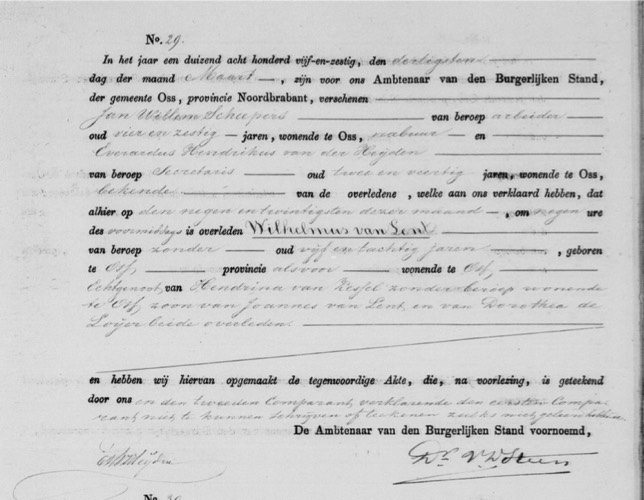 No. 29.
In het jaar een duizend acht honderd vijf-en-zestig, den dertigsten
dag der maand Maart, zijn voor ons Ambtenaar van den Burgerlijken Stand,
der gemeente Oss, provincie Noordbrabant, verschenen
Jan Willem Schepers van beroep arbeider
oud vier en zestig jaren, wonende te Oss, nabuur en
Everardus Hendrikus van der Heijden
van beroep Secretaris oud twee en veertig jaren, wonende te Oss,
bekende van de overledene, welke aan ons verklaard hebben, dat
alhier op den negen en twintigsten dezer maand, om negen ure
des voormiddags is overleden Wilhelmus van Lent
van beroep zonder oud vijf en tachtig jaren, geboren
te Oss, provincie alsvoor wonende te Oss,
Echtgenoot van Hendrina van Kessel zonder beroep wonende
te Oss, zoon van Joannes van Lent, en van Dorothea de
Loijer beide overleden.
en hebben wij hiervan opgemaakt de tegenwoordige Akte, die, na voorlezing, is geteekend
door ons en den tweeden Comparant, verklarende den eersten Compa-
rant niet te kunnen schrijven of teekenen zulks niet geleerd hebbende
De Ambtenaar van den Burgerlijken Stand voornoemd,
No. 30